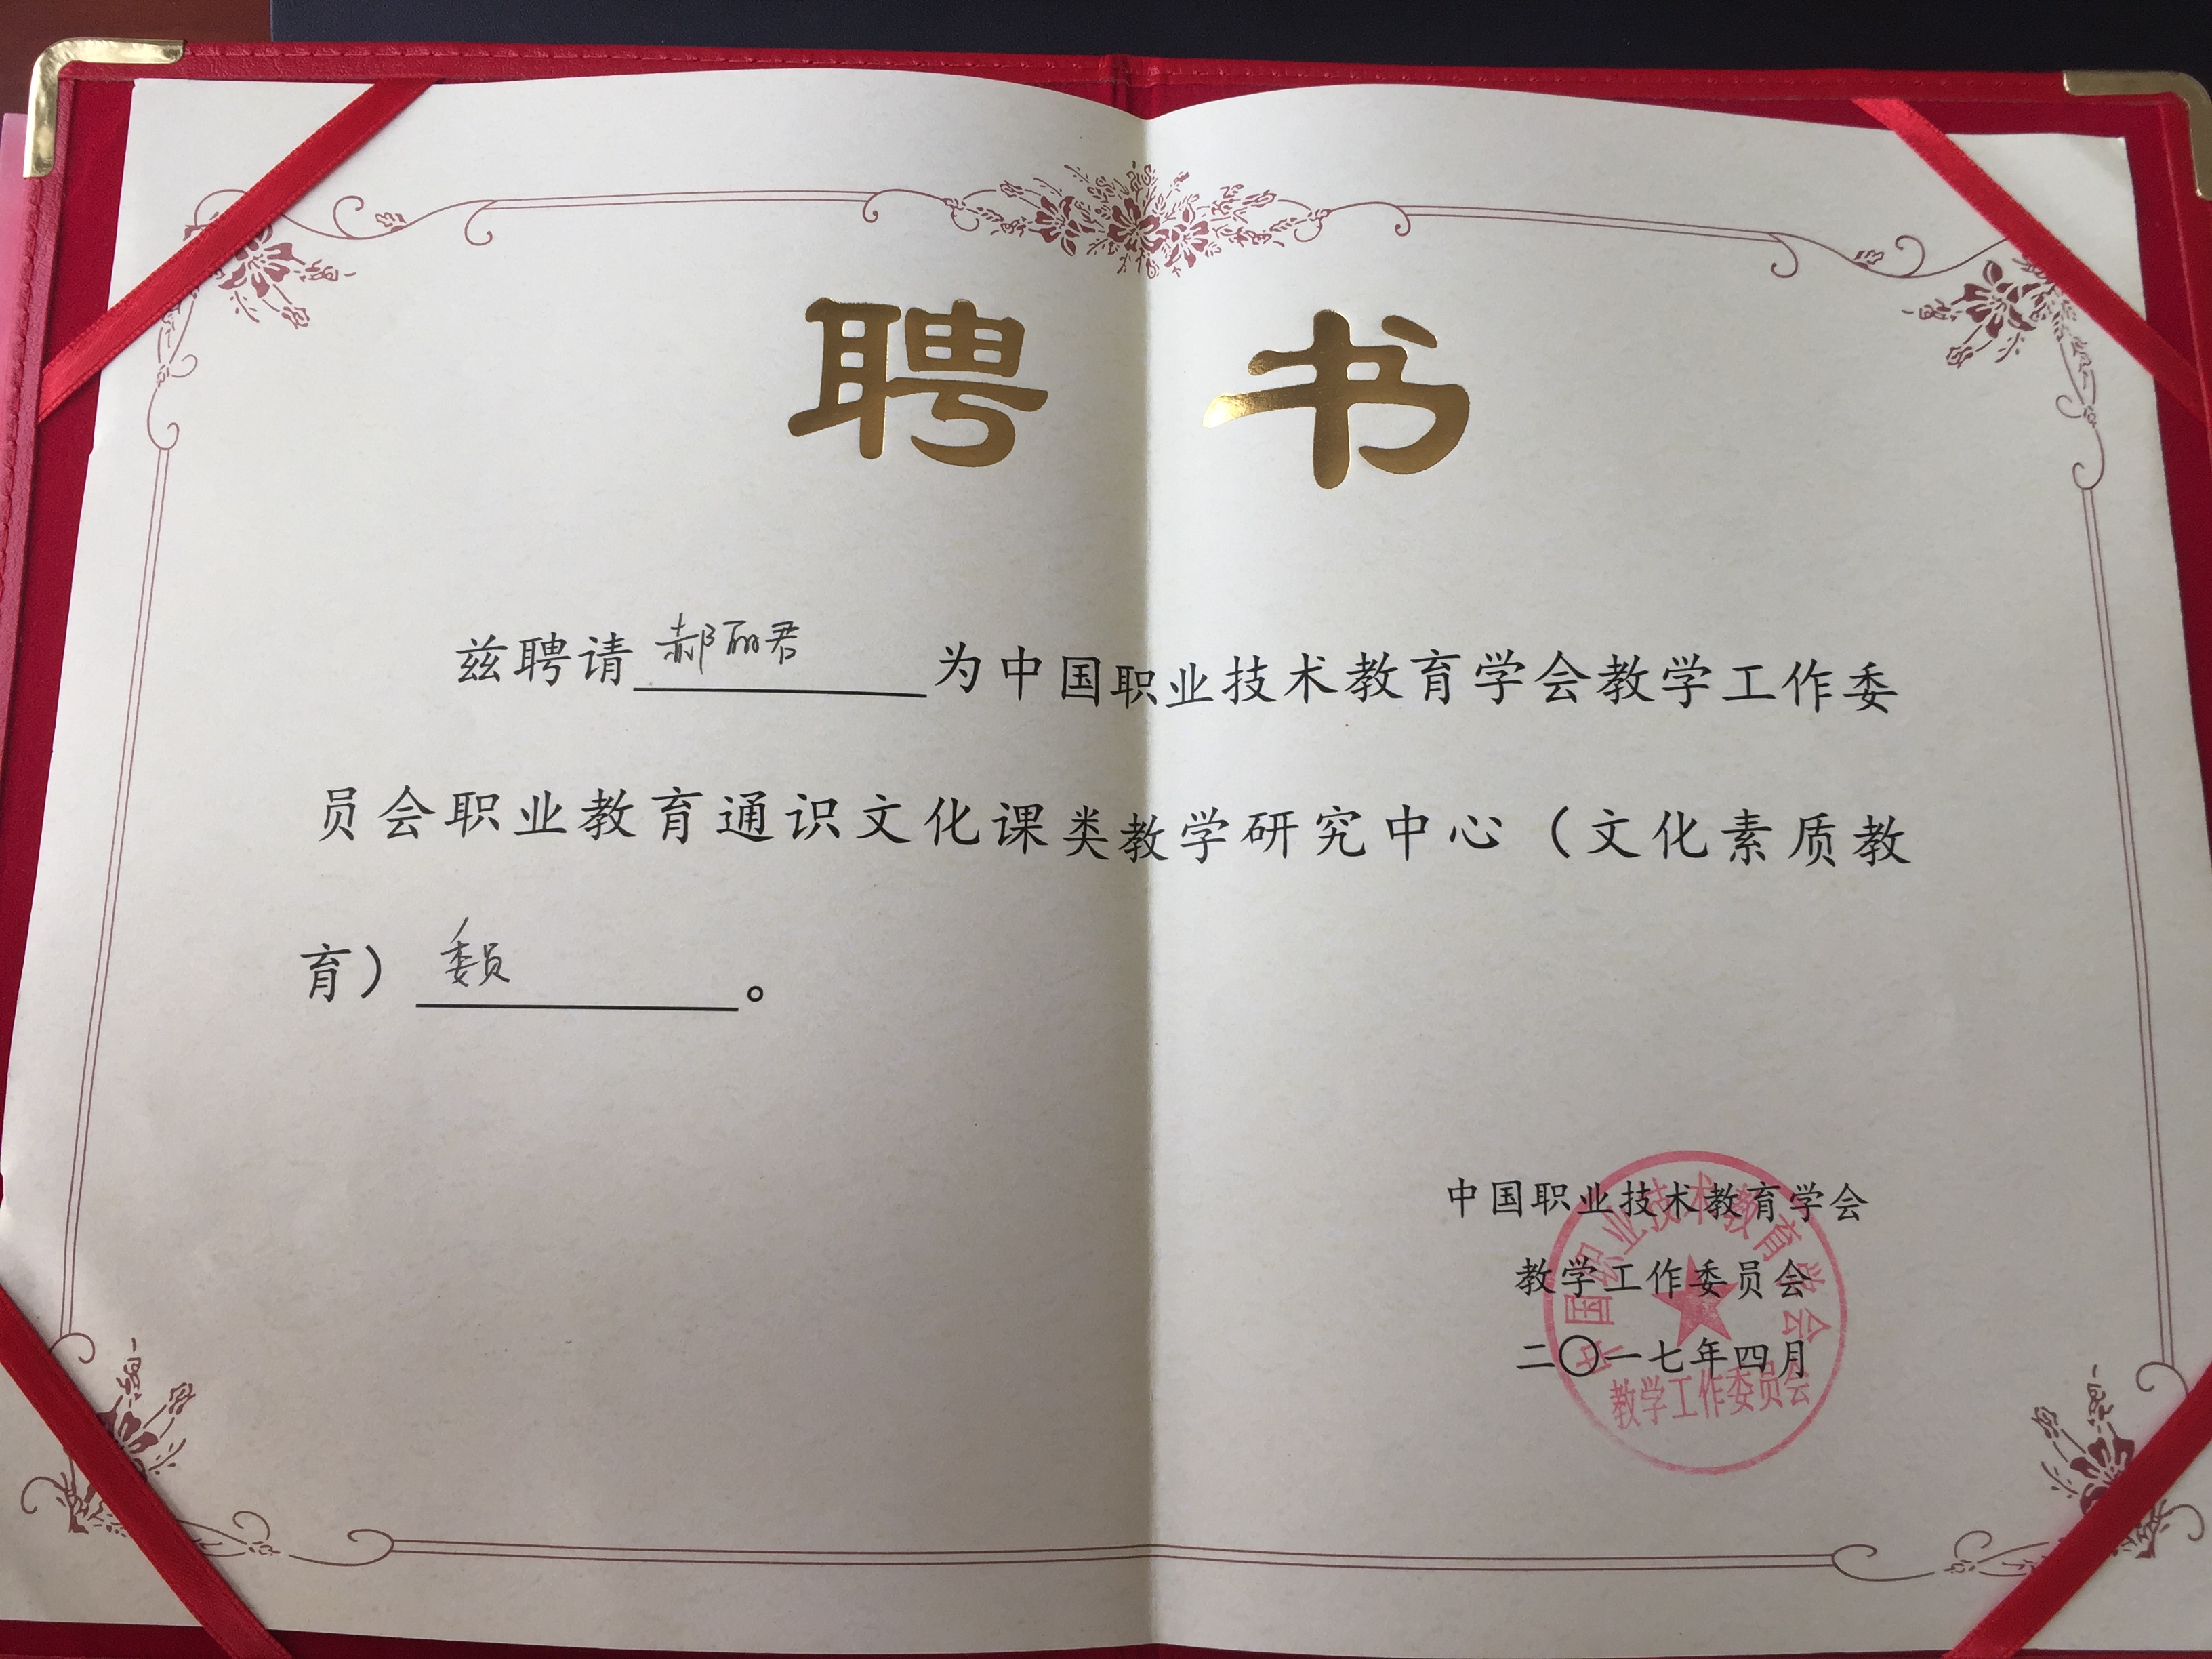 聘书
兹聘请郝丽君为中国职业技术教育学会教学工作委
员会职业教育通识文化课类教学研究中心（文化素质教
育）委员。
中国职业技术教育学会
教学工作委员会
二〇一七年四月
中国职业技术教育学会
教学工作委员会